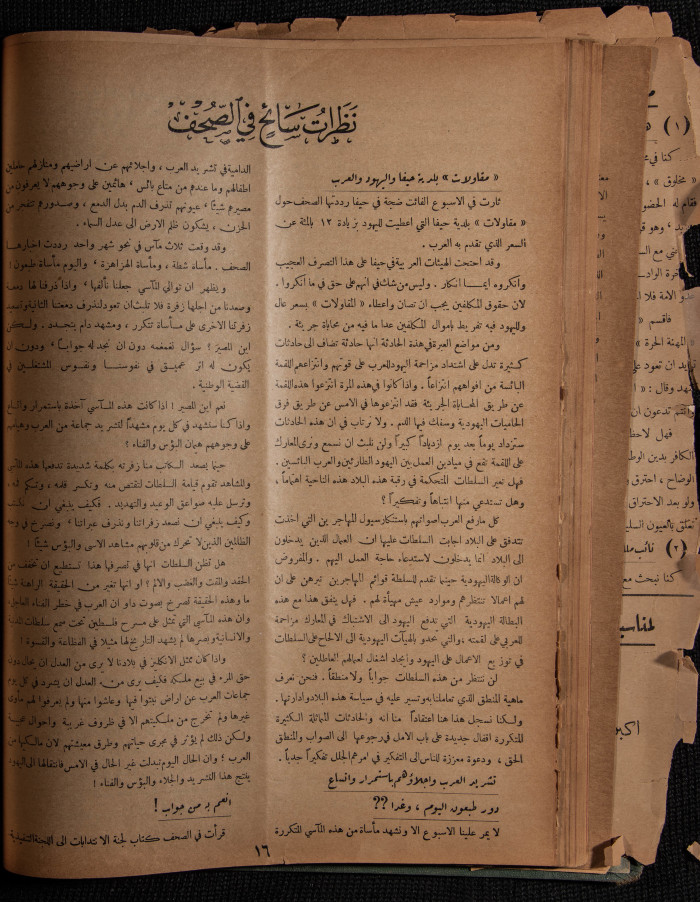 نظرات سائح في الصحف
« مقاولات » بلدية حيفا واليهود والعرب
ثارت في الاسبوع الفائت ضجة في حيفا رددتها الصحف حول
« مقاولات » بلدية حيفا التي اعطيت لليهود بزيادة ١٣ بالمئة عن
السعر الذي تقدم به العرب .
وقد احتجت الهيئات العربية في حيفا على هذا التصرف العجيب
وأنكروه ايما انكار . وليس من شك في انهم على حق في ما أنكروا .
لان حقوق المكلفين يجب ان تصان واعطاء « المقاولات » بسعر عال
ولليهود فيه تفريط باموال المكلفين عدا ما فيه من محاباة جريئة .
ومن مواضع العبرة في هذه الحادثة انها حادثة تضاف الى حادثات
كثيرة تدل على اشتداد مزاحمة اليهود للعرب على قوتهم وانتزاعهم اللقمة
اليائسة من افواههم انتزاعاً . واذا كانوا في هذه المرة انتزعوا هذه اللقمة
عن طريق المحاباة الجريئة فقد انتزعوها في الامس عن طريق فرق
الحاميات اليهودية وسفك فيها الدم . ولا نرتاب في ان هذه الحادثات
ستزداد يوماً بعد يوم ازدياداً كبيراً ولن نلبث ان نسمع ونرى المعارك
على اللقمة تقع في ميادين العمل بين اليهود الطارئين والعرب البائسين .
فهل تعير السلطات المتحكمة في رقبة هذه البلاد هذه الناحية اهتماماً ،
وهل تستدعي منها انتباهاً وتفكيراً ؟
كل ما رفع العرب اصواتهم باستنكار سيول المهاجرين التي اخذت
تتدفق على البلاد اجابت السلطات عليها ان العمال الذين يدخلون
الى البلاد انما يدخلون لاستدعاء حاجة العمل اليهم . والمفروض
ان الوكالة اليهودية حينما تقدم للسلطة قوائم المهاجرين تبرهن على ان
لهم اعمالا تنتظرهم وموارد عيش مهيأة لهم . فهل يتفق هذا مع هذه
البطالة اليهودية التي تدفع اليهود الى الاشتباك في المعارك مزاحمة
للعربي على لقمته ، والتي تحدو بالهيآت اليهودية الى الالحاح على السلطات
في توزيع الاعمال على اليهود وايجاد اشغال لعمالهم العاطلين ؟
لن ننتظر من هذه السلطات جواباً ولا منطقاً . فنحن نعرف
ماهية المنطق الذي تعاملنا به وتسير عليه في سياسة هذه البلاد وادارتها .
ولكننا نسجل هذا هنا اعتقاداً منا انه والحادثات المماثلة الكثيرة
المتكررة اقفال جديدة على باب الامل في رجوعها الى الصواب والمنطق
الحق ، ودعوة معززة للناس الى التفكير في امرهم الجلل تفكيراً جدياً .
تشريد العرب واجلاؤهم باستمرار واتساع
دور طبعون اليوم ، وغدا ؟؟
لا يمر علينا الاسبوع الا ونشهد مأساة من هذه المآسي المتكررة
الدامية في تشريد العرب ، واجلائهم عن اراضيهم ومنازلهم حاملين
اطفالهم وما عندهم من متاع بائس ، هائمين على وجوههم لا يعرفون من
مصيرهم شيئاً ، عيونهم تذرف الدم بدل الدمع ، وصدورهم تتفجر من
الحزن ، يشكون ظلم الارض الى عدل السماء .
وقد وقعت ثلاث مآس في نحو شهر واحد رددت اخبارها
الصحف . مأساة شطة ، ومأساة الهزاهزة ، واليوم مأساة طبعون !
ويظهر ان توالي المآسي جعلنا نألفها ، واذا ذرفنا لها دمعة
وصعدنا من اجلها زفرة فلا تلبث ان تعود لنذرف دمعتنا الثانية ونصعد
زفرتنا الاخرى على مأساة تتكرر ، ومشهد دام يتجدد . ولكن
اين المصير ؟ سؤال نغمغمه دون ان نجد له جواباً ، ودون ان
يكون له اثر عميق في نفوسنا ونفوس المشتغلين في
القضية الوطنية .
نعم اين المصير ! اذا كانت هذه المآسي آخذة باستمرار واتساع
واذا كنا سنشهد في كل يوم مشهداً لتشريد جماعة من العرب وهيامهم
على وجوههم هيام البؤس والفناء ؟
حينما يصعد الكاتب منا زفرته بكلمة شديدة تدفعها هذه المآسي
والمشاهد تقوم قيامة السلطات لتقتص منه وتكسر قلمه ،
وترسل عليه صواعق الوعيد والتهديد . فكيف ينبغي ان نكتب
وكيف ينبغي ان نصعد زفراتنا ونذرف عبراتنا ، ونصرخ في وجه
الظالمين الذين لا تحرك من قلوبهم مشاهد الاسى والبؤس شيئاً !
هل تظن السلطات انها في تصرفها هذا تستطيع ان تخفف من
الحقد والمقت والغضب والالم ؟ او انها تغير من الحقيقة الراهنة شيئاً
ما وهذه الحقيقة تصرخ بصوت داو ان العرب في خطر الفناء العاجل ،
وان هذه المآسي التي تمثل على مسرح فلسطين تحت سمع سلطات المدنية
والانسانية وبصرها لم يشهد التاريخ لها مثيلا في الفظاعة والقسوة !
واذا كان ممثل الانكليز في بلادنا لا يرى من العدل ان يحال دون
حق المرء في بيع ملكه فكيف يرى من العدل ان يشرد في كل يوم
جماعات العرب عن اراض نبتوا فيها وعاشوا منها ولم يعرفوا لهم مأوى
غيرها ولم تخرج من ملكيتهم الا في ظروف غريبة واحوال عجيبة
ولكن ذلك لم يؤثر في مجرى حياتهم وطرق معيشتهم لان مالكيها من
العرب ؛ وان الحال اليوم تبدلت غير الحال في الامس فانتقالها الى اليهود
ينتج هذا التشريد والجلاء والبؤس والفناء !
انعم به من جواب !
قرأت في الصحف كتاب لجنة الانتدابات الى اللجنة التنفيذية
١٦